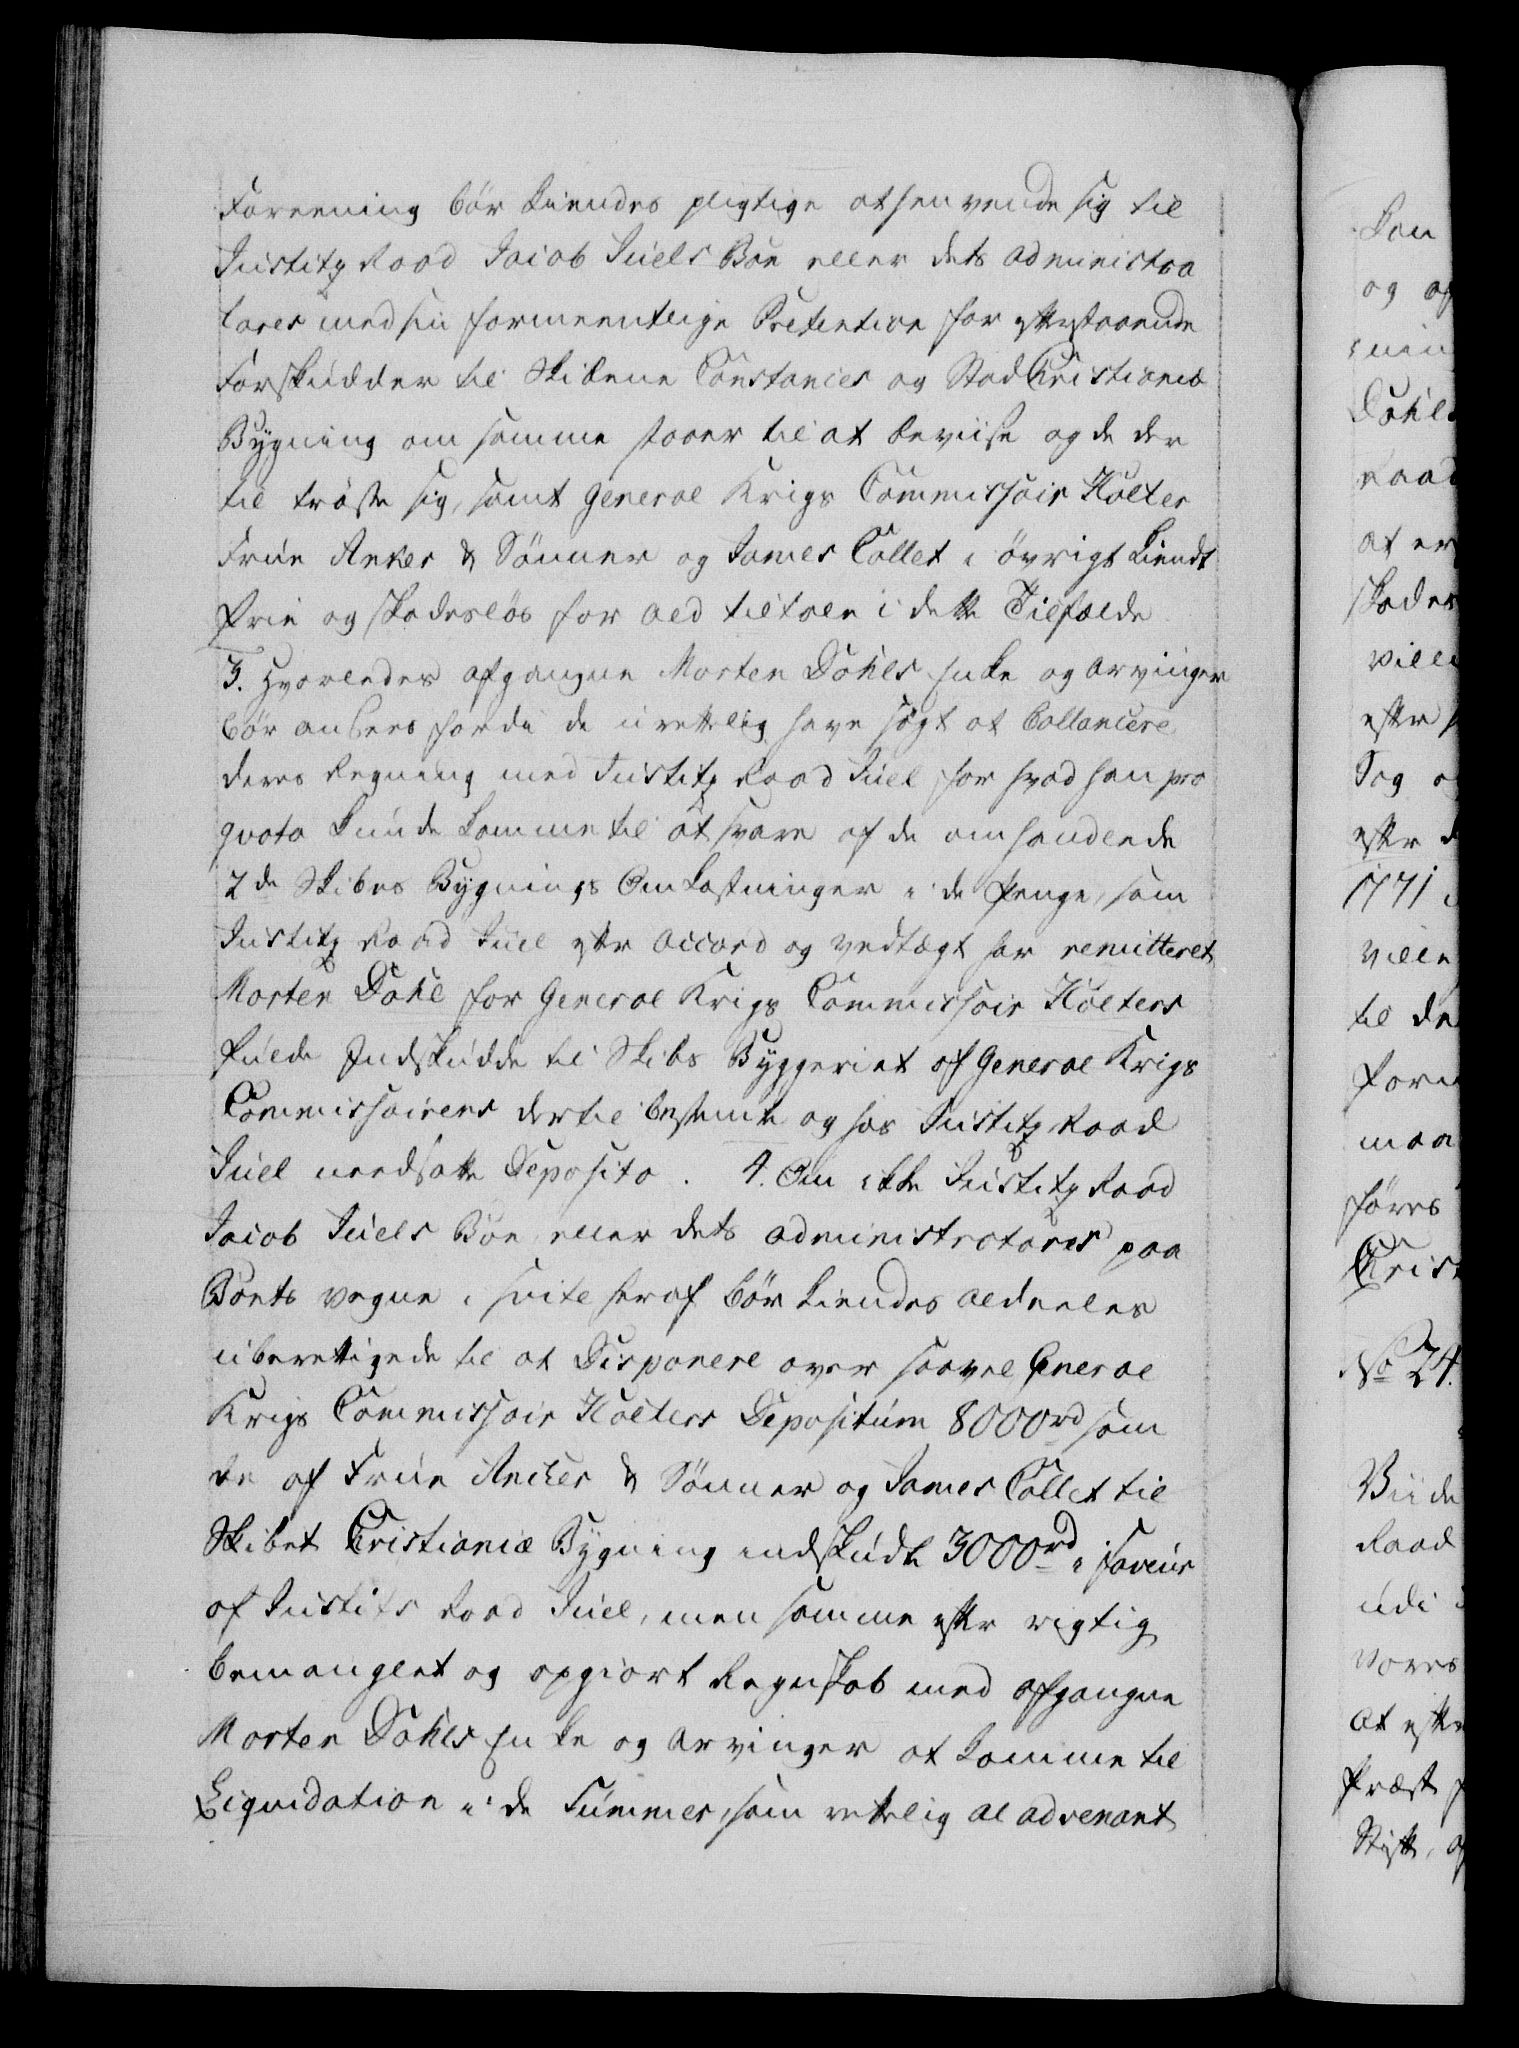 Foreening bör kiendes pligtige at henvende sig til
Justitz Raad Jacob Juels Boe eller dets administra
torer med sin formeentlige Prætention for efterstaaende
Forskudder til Skibene Constances og Stad Christianiæ
Bygning om samme staaer til at beviise og de der
til trøste sig, samt General Krigs Commissair Holter
Frue Anker & Sönner og James Collet i övrigt kiendt
frie og skadeslös for ald tiltale i dette Tilfælde
3. Hvorledes afgangne Morten Dahls Enke og Arvinger
bör ansees fordi de urettelig have sögt at Ballancere
deres Regning med Justitz Raad Juel for hvad han pro
qvota kunde komme til at svare af de omhandlede
2de Skibes Bygnings Omkostninger i de Penge, som
Justitz Raad Juel efter Accord og vedtægt har remitteret
Morten Dahl for General Krigs Commissair Holters
fulde Indskudde til Skibs Byggeriet af General Krigs
Commissairens dertil bestemte og hos Justitz Raad
Juel needsatte Deposito. 4. Om ikke Justitz Raad
Jacob Juels Boe eller dets administratorer paa
Boets vegne i fvite heraf bör kiendes aldeeles
uberettigede til at Disponere over saavel General
Krigs Commissair Holters Depositum 8000rd som
de af Frue Ancher & Sönner og James Collet til
Skibet Christianiæ Bygning indskudte 3000rd i faveur
af Justits Raad Juel, men samme efter rigtig
bemanglet og opgiort Regnskab med afgangne
Morten Dahls Enke og Arvinger at komme til
Liqvidation i de Summer, som rettelig al advenant